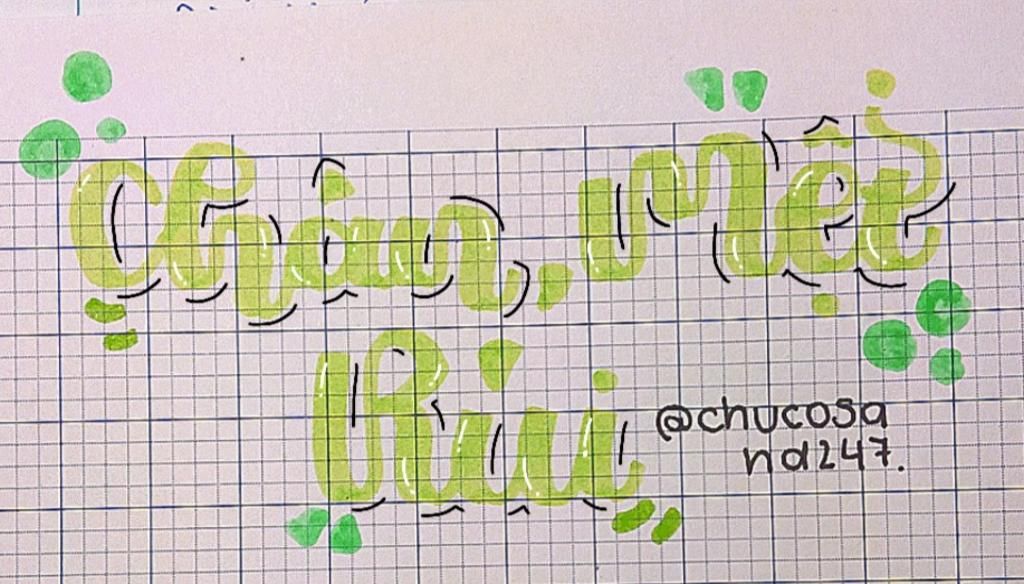 Chán, Mệt
Rùi
@chucosa
nd247.